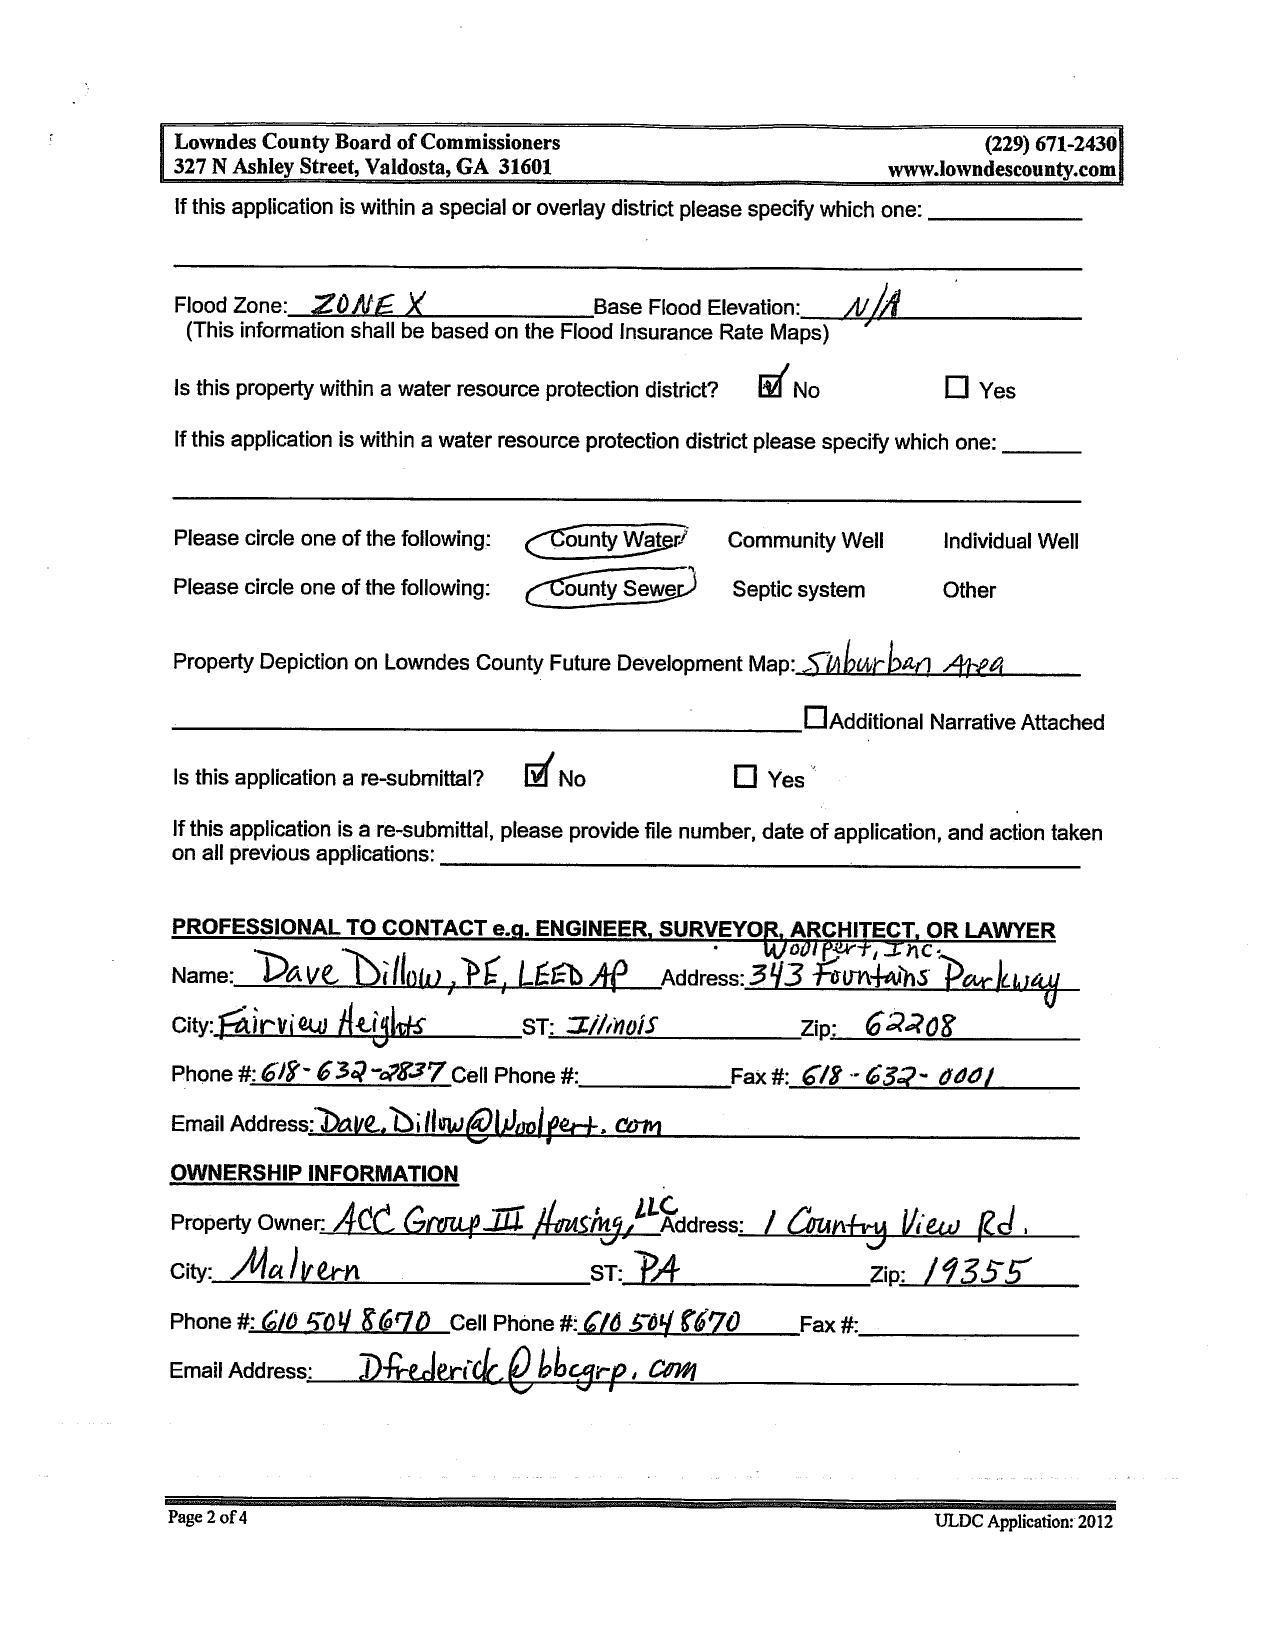 Lowndes County Board of Commissioners (229) 671-2430
327 N Ashley Street, Valdosta, GA 31601 www.lowndescounty.com
If this application is within a special or overlay district please specify which one:
Flood Zone: ZONE X Base Flood Elevation: N/A
(This information shall be based on the Flood Insurance Rate Maps)
Is this property within a water resource protection district? ☑ No ☐ Yes
If this application is within a water resource protection district please specify which one:
Please circle one of the following: County Water Community Well Individual Well
Please circle one of the following: County Sewer Septic system Other
Property Depiction on Lowndes County Future Development Map: Suburban Area
☐ Additional Narrative Attached
Is this application a re-submittal? ☑ No ☐ Yes
If this application is a re-submittal, please provide file number, date of application, and action taken
on all previous applications:
PROFESSIONAL TO CONTACT e.g. ENGINEER, SURVEYOR, ARCHITECT, OR LAWYER
Woolpert, Inc.
Name: Dave Dillow, PE, LEED AP Address: 343 Fountains Parkway
City: Fairview Heights ST: Illinois Zip: 62208
Phone #: 618-632-2837 Cell Phone #: Fax #: 618-632-0001
Email Address: Dave.Dillow@Woolpert.com
OWNERSHIP INFORMATION
Property Owner: ACC Group III Housing, LLC Address: 1 Country View Rd.
City: Malvern ST: PA Zip: 19355
Phone #: 610 504 8670 Cell Phone #: 610 504 8670 Fax #:
Email Address: Dfrederick@bbcgrp.com
Page 2 of 4 ULDC Application: 2012